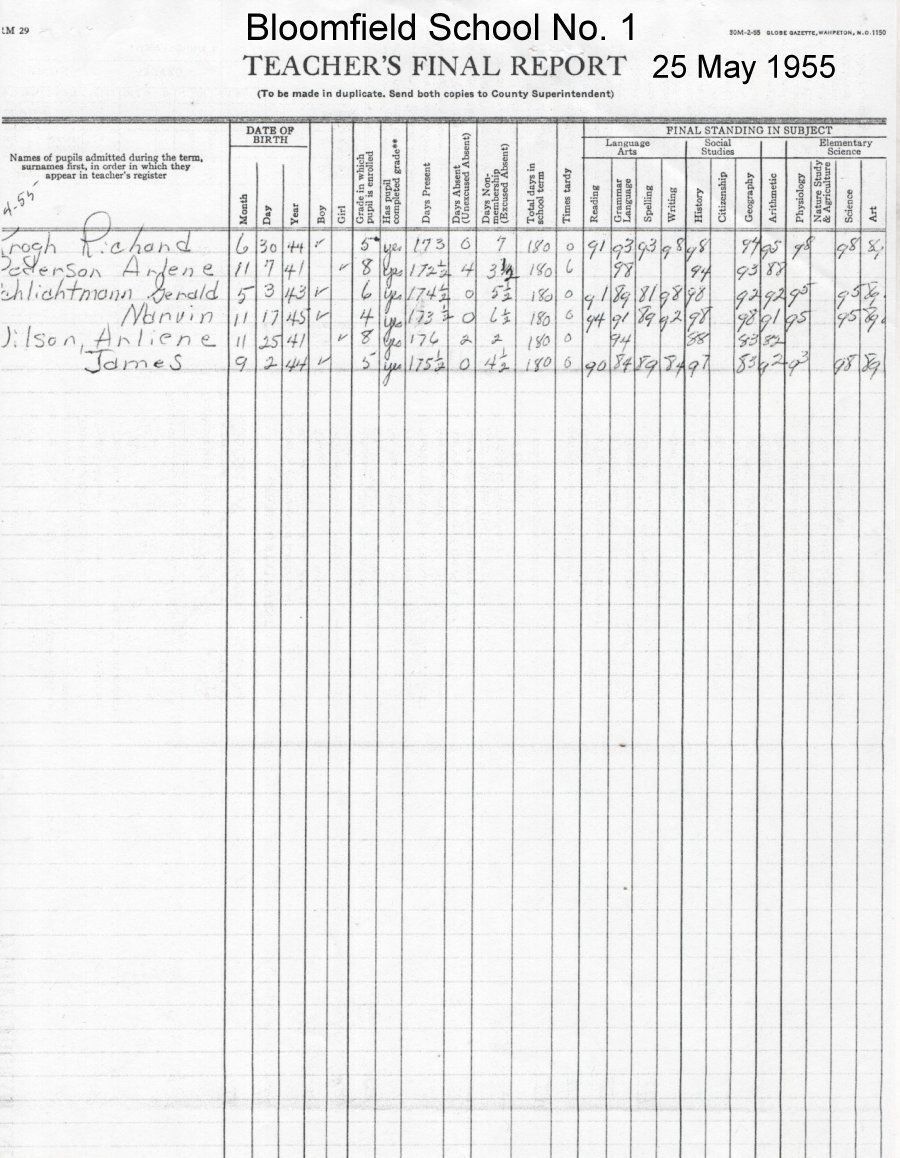 Bloomfield School No. 1
RM 29
30M-2-55 GLOBE GAZETTE, WAHPETON, N.D. 1150
TEACHER'S FINAL REPORT 25 May 1955
(To be made in duplicate. Send both copies to County Superintendent)
Names of pupils admitted during the term, surnames first, in order in which they appear in teacher's register
DATE OF BIRTH
Month Day Year
Boy
Girl
Grade in which pupil is enrolled
Has pupil completed grade**
Days Present
Days Absent (Unexcused Absent)
Days Non-membership (Excused Absent)
Total days in school term
Times tardy
FINAL STANDING IN SUBJECT
Language Arts
Social Studies
Elementary Science
Reading
Grammar Language
Spelling
Writing
History
Citizenship
Geography
Arithmetic
Physiology
Nature Study & Agriculture
Science
Art
4-55
Krogh Richard 6 30 44 ✓ 5 yes 173 0 7 180 0 91 93 93 98 98 94 95 98 98
Pederson Arlene 11 7 41 ✓ 8 yes 172½ 4 3½ 180 6 98 94 93 88
chlichtmann Gerald 5 3 43 ✓ 6 yes 174½ 0 5½ 180 0 91 89 81 98 98 92 92 95 95 89
Marvin 11 17 45 ✓ 4 yes 173½ 0 6½ 180 0 94 91 89 92 98 98 91 95 95 89
Wilson, Arliene 11 25 41 ✓ 8 yes 176 2 2 180 0 94 88 83 82
James 9 2 44 ✓ 5 yes 175½ 0 4½ 180 0 90 84 89 84 97 83 92 93 98 89